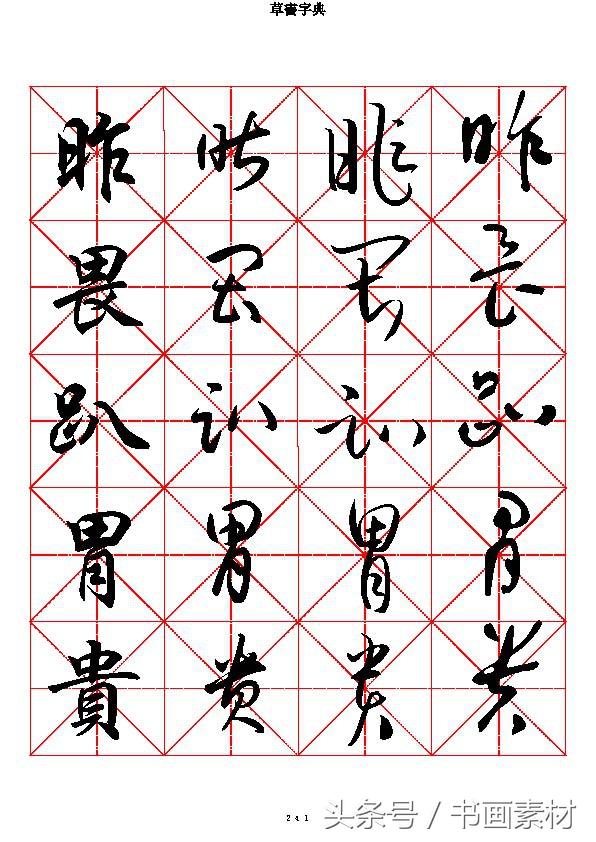 草書字典
昨 昨 昨 昨
畏 畏 畏 畏
趴 趴 趴 趴
胃 胃 胃 胃
貴 貴 貴 貴
241
头条号 / 书画素材